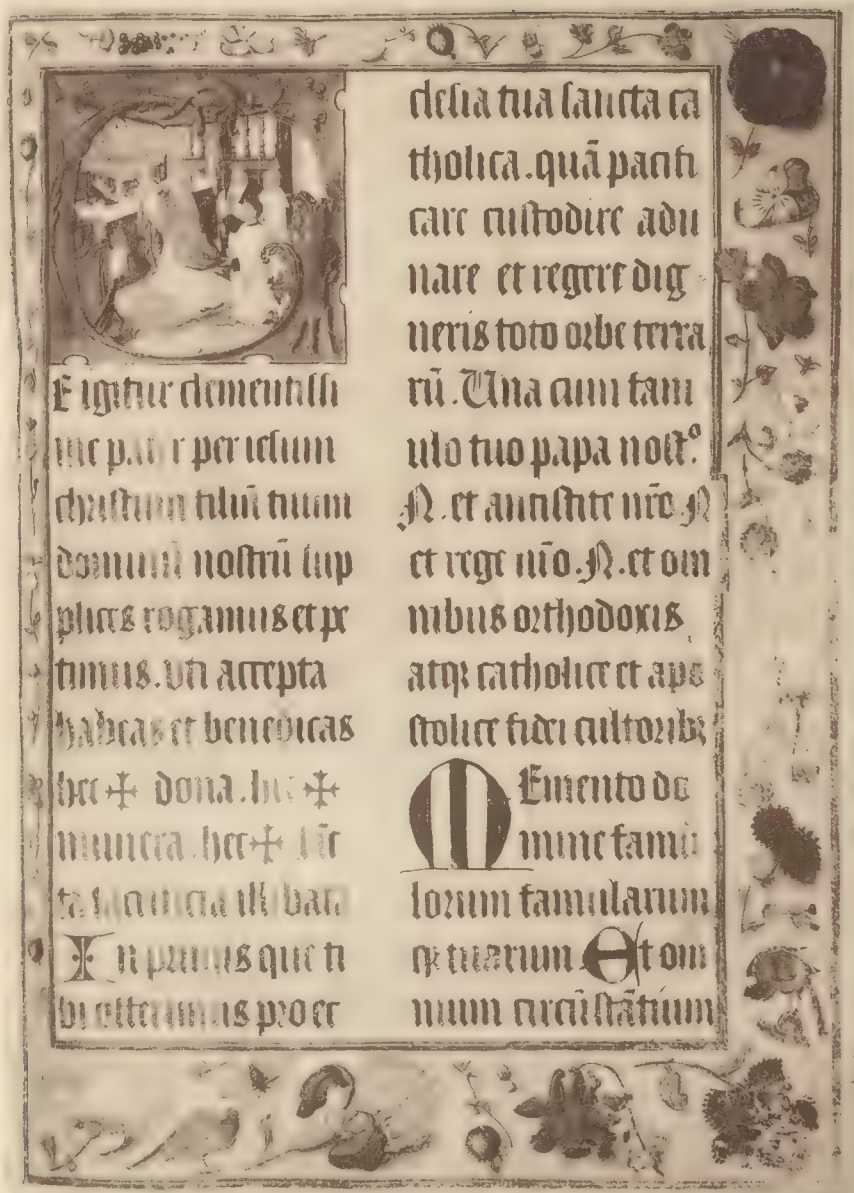 E igitur clementissi
me pater per iesum
christum filiū tuum
dominū nostrū sup
plices rogamus et pe
timus. vti accepta
habeas et benedicas
hec ✠ dona. hec ✠
munera. hec ✠ sāc
ta sacrificia illibata
In primis que ti
bi offerimus pro ec
clesia tua sancta ca
tholica. quā pacifi
care custodire adu
nare et regere dig
neris toto orbe terra
rū. Una cum fam
ulo tuo papa nostº.
N. et antistite nr̄o N
et rege nr̄o. N. et om
nibus orthodoxis
atqꝫ catholice et apo
stolice fidei cultoribꝫ
Memento do
mine famu
lorum famularum
qꝫ tuarum Et om
nium circūstātium